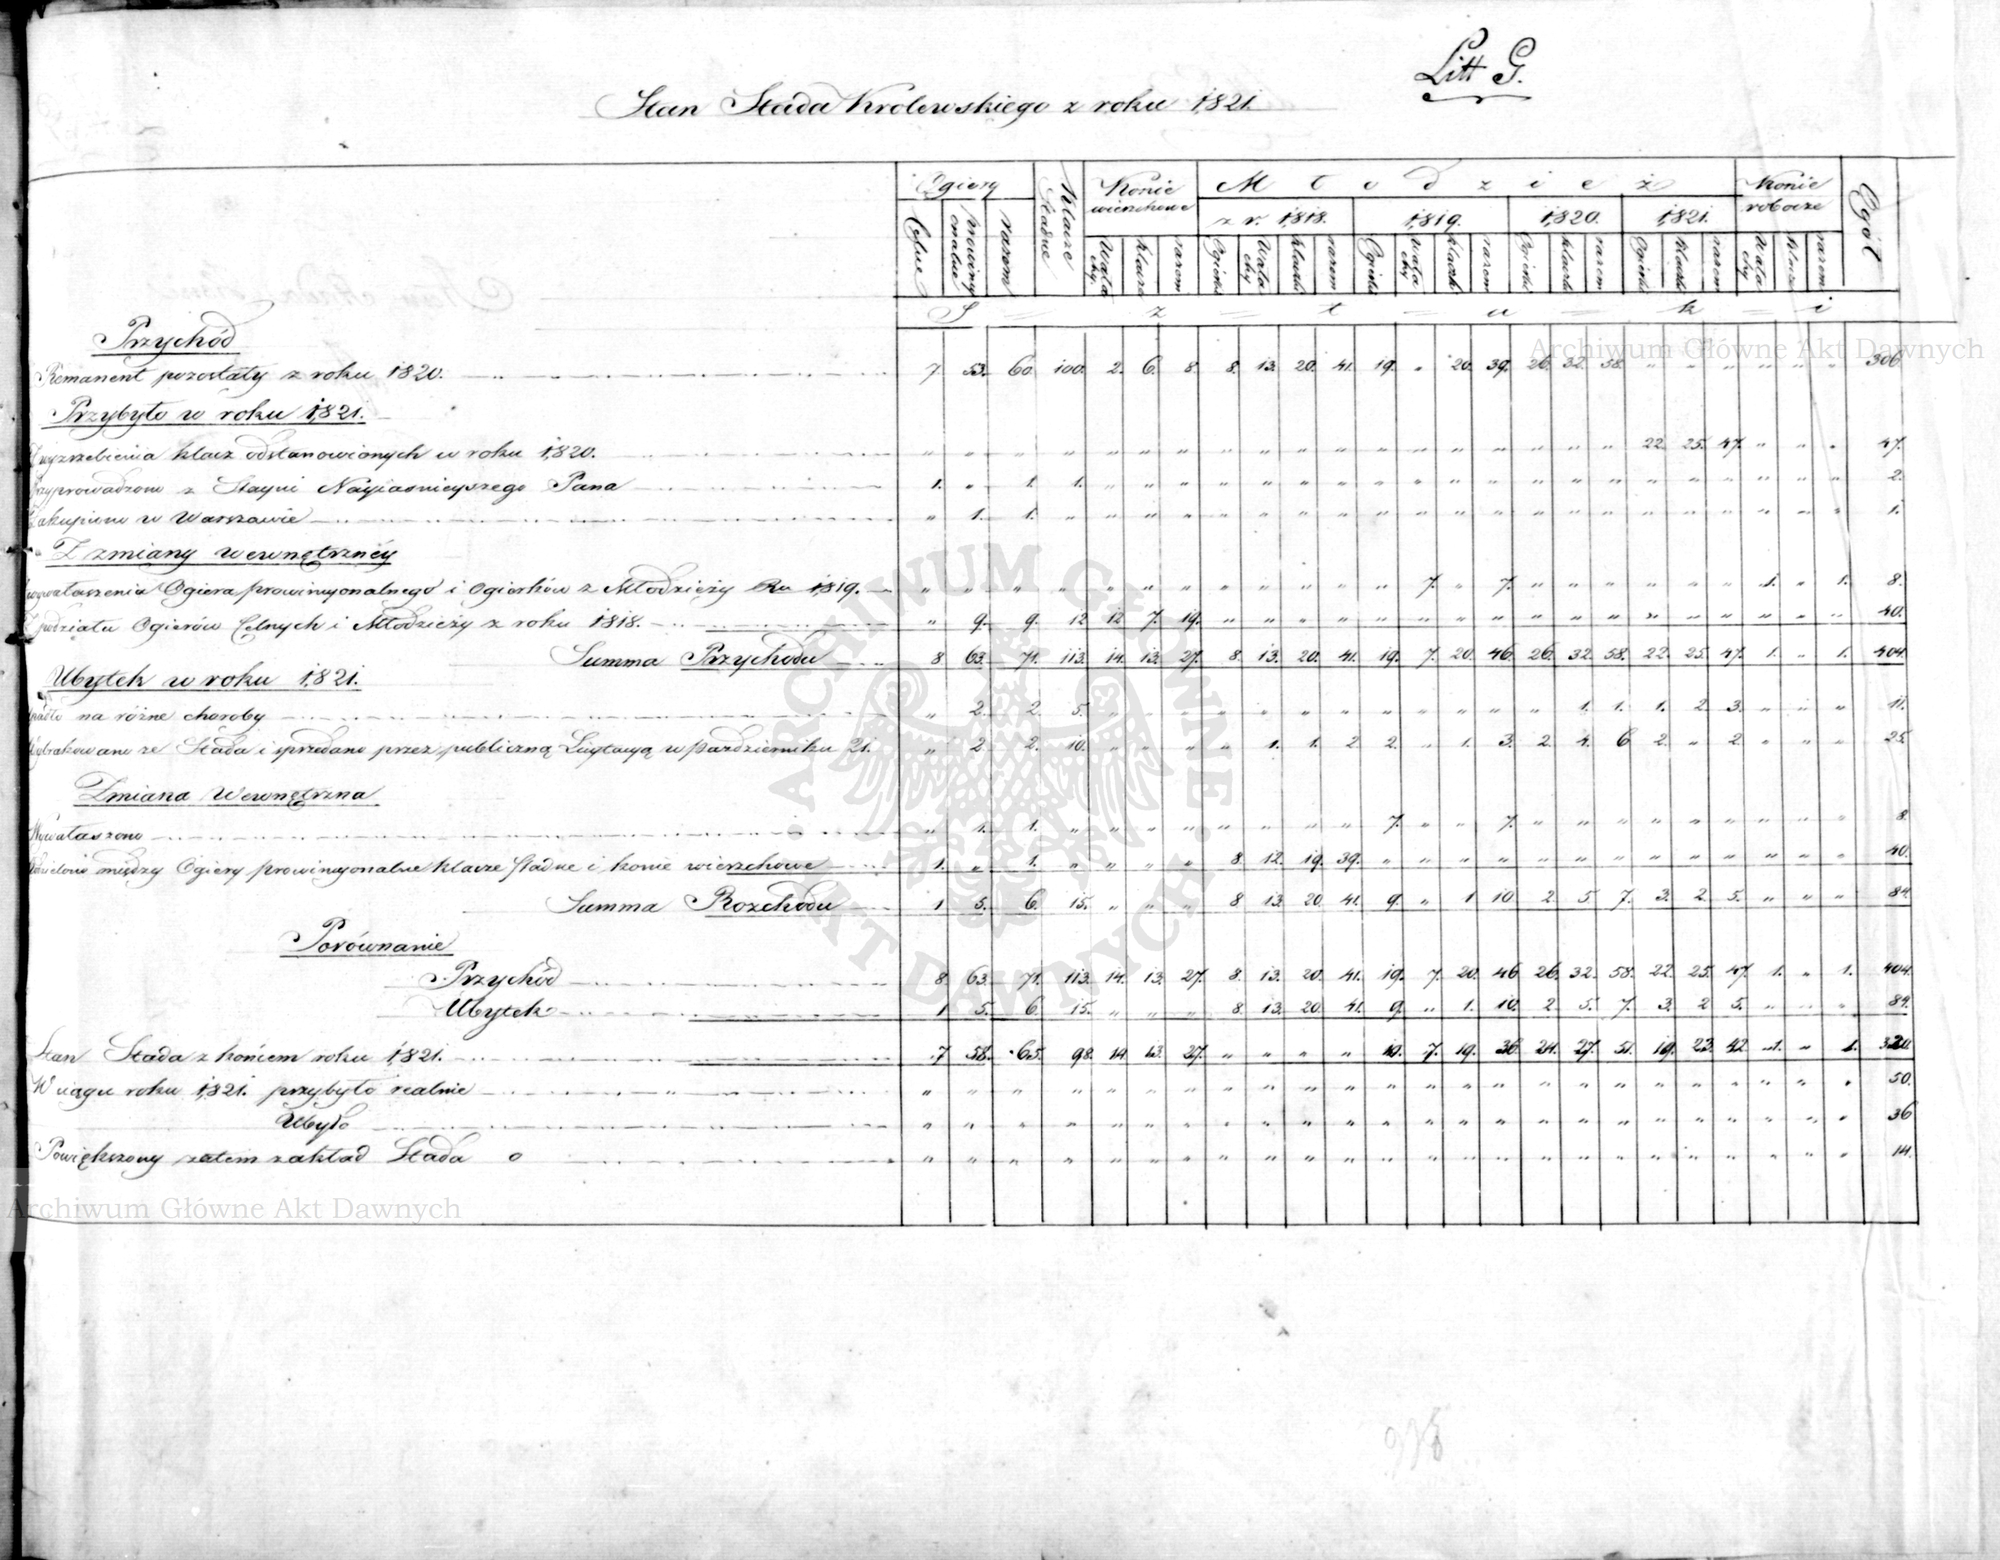 Litt G.
Stan Stada Krolewskiego z roku 1821.
Ogiery Klacze Stadne Konie wierzchowe Młodzież Konie robocze Ogół
z r. 1818. 1819. 1820. 1821.
Celne prowincyonalne razem Wałachy klacze razem Ogierki Wałachy klaczki razem Ogierki Wałachy klaczk razem Ogierki klaczki razem Ogierki klaczki razem Wałachy klacze razem
S z t u k i
Przychód
Remanent pozostały z roku 1820. 7 53. 60. 100. 2. 6. 8. 8. 13. 20. 41. 19. " 20. 39. 26. 32. 58. " " " " " " 306
Przybyło w roku 1821.
wyzrzebienia klacz odstanowionych w roku 1820. " " " " " " " " " " " " " " " " " " 22. 25. 47. " " " 47.
Przyprowadzono z Stayni Nayiasnieyszego Pana 1. " 1. 1. " " " " " " " " " " " " " " " " " " " " 2.
Zakupiono w Warszawie " 1. 1. " " " " " " " " " " " " " " " " " " " " " 1.
Z zmiany wewnętrzney
wywałaszenia Ogiera prowincyonalnego i Ogierków z Młodzieży Ru 1819. " " " " " " " " " " " " 7. " 7. " " " " " " 1. " 1. 8.
Z podziału Ogierów Celnych i Młodzieży z roku 1818. " 9. 9. 12 12 7. 19. " " " " " " " " " " " " " " " " " 40.
Summa Przychodu 8 63. 71. 113. 14. 13. 27. 8. 13. 20. 41. 19. 7. 20. 46. 26. 32. 58. 22. 25. 47. 1. " 1. 404.
Ubytek w roku 1821.
padło na różne choroby " 2. 2. 5. " " " " " " " " " " " " 1. 1. 1. 2. 3. " " " 11.
Wybrakowano ze Stada i sprzedano przez publiczną Licytacyą w Pazdzierniku 21. " 2. 2. 10. " " " " 1. 1. 2. 2. " 1. 3. 2. 4. 6 2. " 2. " " " 25
Zmiana Wewnętrzna
Wywałaszono " 1. 1. " " " " " " " " 7. " " 7. " " " " " " " " " 8.
między Ogiery prowincyonalne klacze stadne i konie wierzchowe 1. " 1. " " " " 8. 12. 19. 39. " " " " " " " " " " " " " 40.
Summa Rozchodu 1 5. 6. 15. " " " 8 13. 20. 41. 9. " 1 10. 2. 5 7. 3. 2. 5. " " " 84
Porównanie
Przychód 8. 63. 71. 113. 14. 13. 27. 8. 13. 20. 41. 19. 7. 20. 46. 26. 32. 58. 22. 25. 47. 1. " 1. 404.
Ubytek 1 5. 6. 15. " " " 8. 13. 20. 41. 9. " 1. 10. 2 5. 7. 3. 2 5. " " " 84.
Stan Stada z końcem roku 1821. 7 58. 65. 98. 14 13. 27. " " " " 10. 7. 19. 36. 24. 27. 51. 19. 23. 42 1. " 1. 320.
W ciągu roku 1821. przybyło realnie " " " " " " " " " " " " " " " " " " " " " " " " 50.
Ubyło " " " " " " " " " " " " " " " " " " " " " " " " 36
Powiększony zatem zakład Stada o " " " " " " " " " " " " " " " " " " " " " " " " 14.
Archiwum Główne Akt Dawnych
Archiwum Główne Akt Dawnych
ARCHIWUM GŁÓWNE AKT DAWNYCH